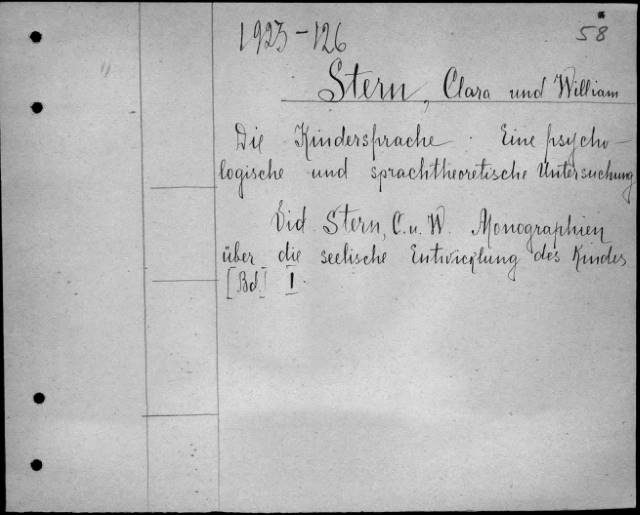 1923-126
58
Stern, Clara und William
Die Kindersprache. Eine psycho-
logische und sprachtheoretische Untersuchung
Vid. Stern, C. u. W. Monographien
über die seelische Entwicklung des Kindes
[Bd] I.